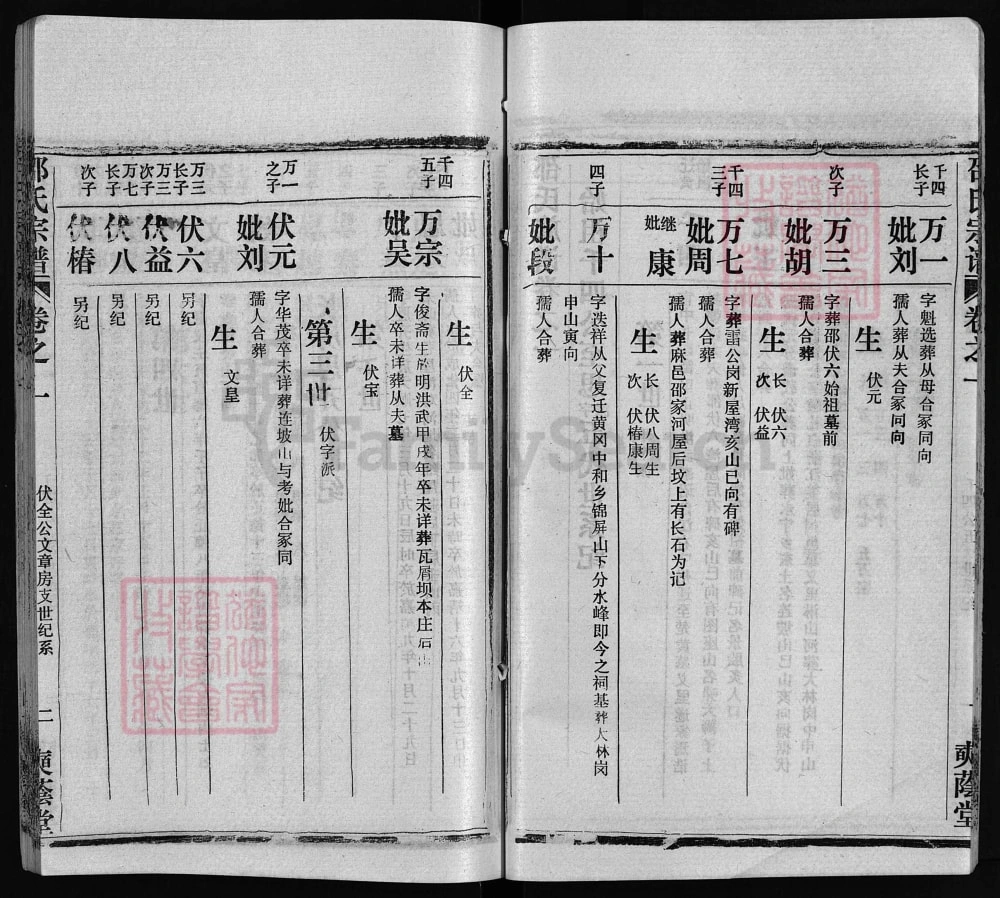 邵氏宗谱
卷之一
一
爽蔭堂
千四长子
万一
妣刘
字魁选葬从母合冢同向
孺人葬从夫合冢同向
生 伏元
次子
万三
妣胡
字葬邵伏六始祖墓前
孺人合葬
生 长 伏六
次 伏益
千四三子
万七
妣周
继妣 康
字葬雷公岗新屋湾亥山已向有碑
孺人合葬
孺人葬麻邑邵家河屋后坟上有长石为记
生 长 伏八周生
次 伏椿康生
四子
万十
妣段
字选祥从父复迁黄冈中和乡锦屏山下分水峰即今之祠基葬大林岗
申山寅向
孺人合葬
千四五子
万宗
妣吴
生 伏全
字俊斋生于明洪武甲戌年卒未详葬瓦屑坝本庄后山
孺人卒未详葬从夫墓
生 伏宝
第三世 伏字派
万一之子
伏元
妣刘
字华茂卒未详葬连坡山与考妣合冢同
孺人合葬
生 文皇
万三长子
伏六
另纪
万三次子
伏益
另纪
万七长子
伏八
另纪
次子
伏椿
另纪
邵氏宗谱
卷之一
伏全公文章房支世纪系
二
爽蔭堂
FamilySearch